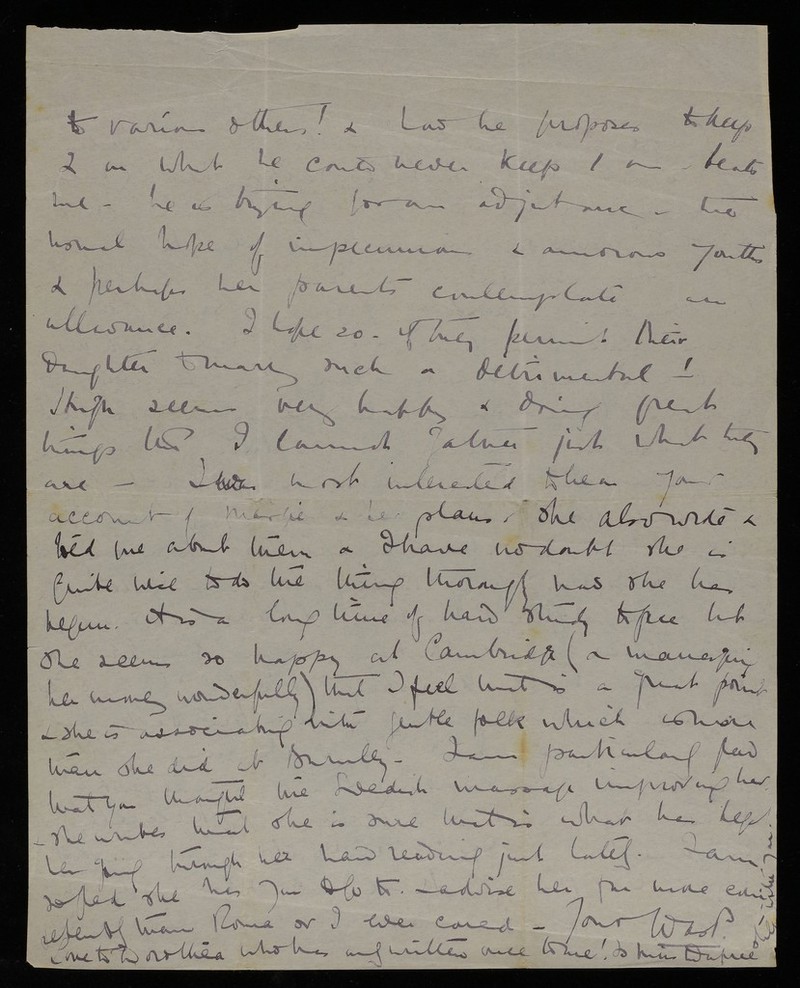 to various others! & how he proposes to keep
2 on what he could never keep 1 on - beats
me - he is trying for an adjutancy - the
usual hope of impecunious & amorous youths
& perhaps her parents contemplate an
allowance. I hope so - if they permit their
daughter to marry such a detrimental!
Hugh seems very happy & doing great
things tho' I cannot gather just what they
are - I was most interested to hear your
account of & her plans. She also wrote &
told me about them & I have no doubt she is
quite wise to do the thing thoroughly now she has
begun. It is a long time of hard study to face but
she seems so happy at Cambridge (& managing
her money wonderfully) that I feel that is a great point
& she is associating with gentle folk which is more
than she did at - I am particularly glad
that you thought the Swedish massage improving her
- she writes that she is sure that is what has kept
her going through her hard reading just lately. I am
so glad she has you to go to. & advise her, far more
than Rome or I ever could - Your
Love to Dorothea who has only written once to me! & Miss